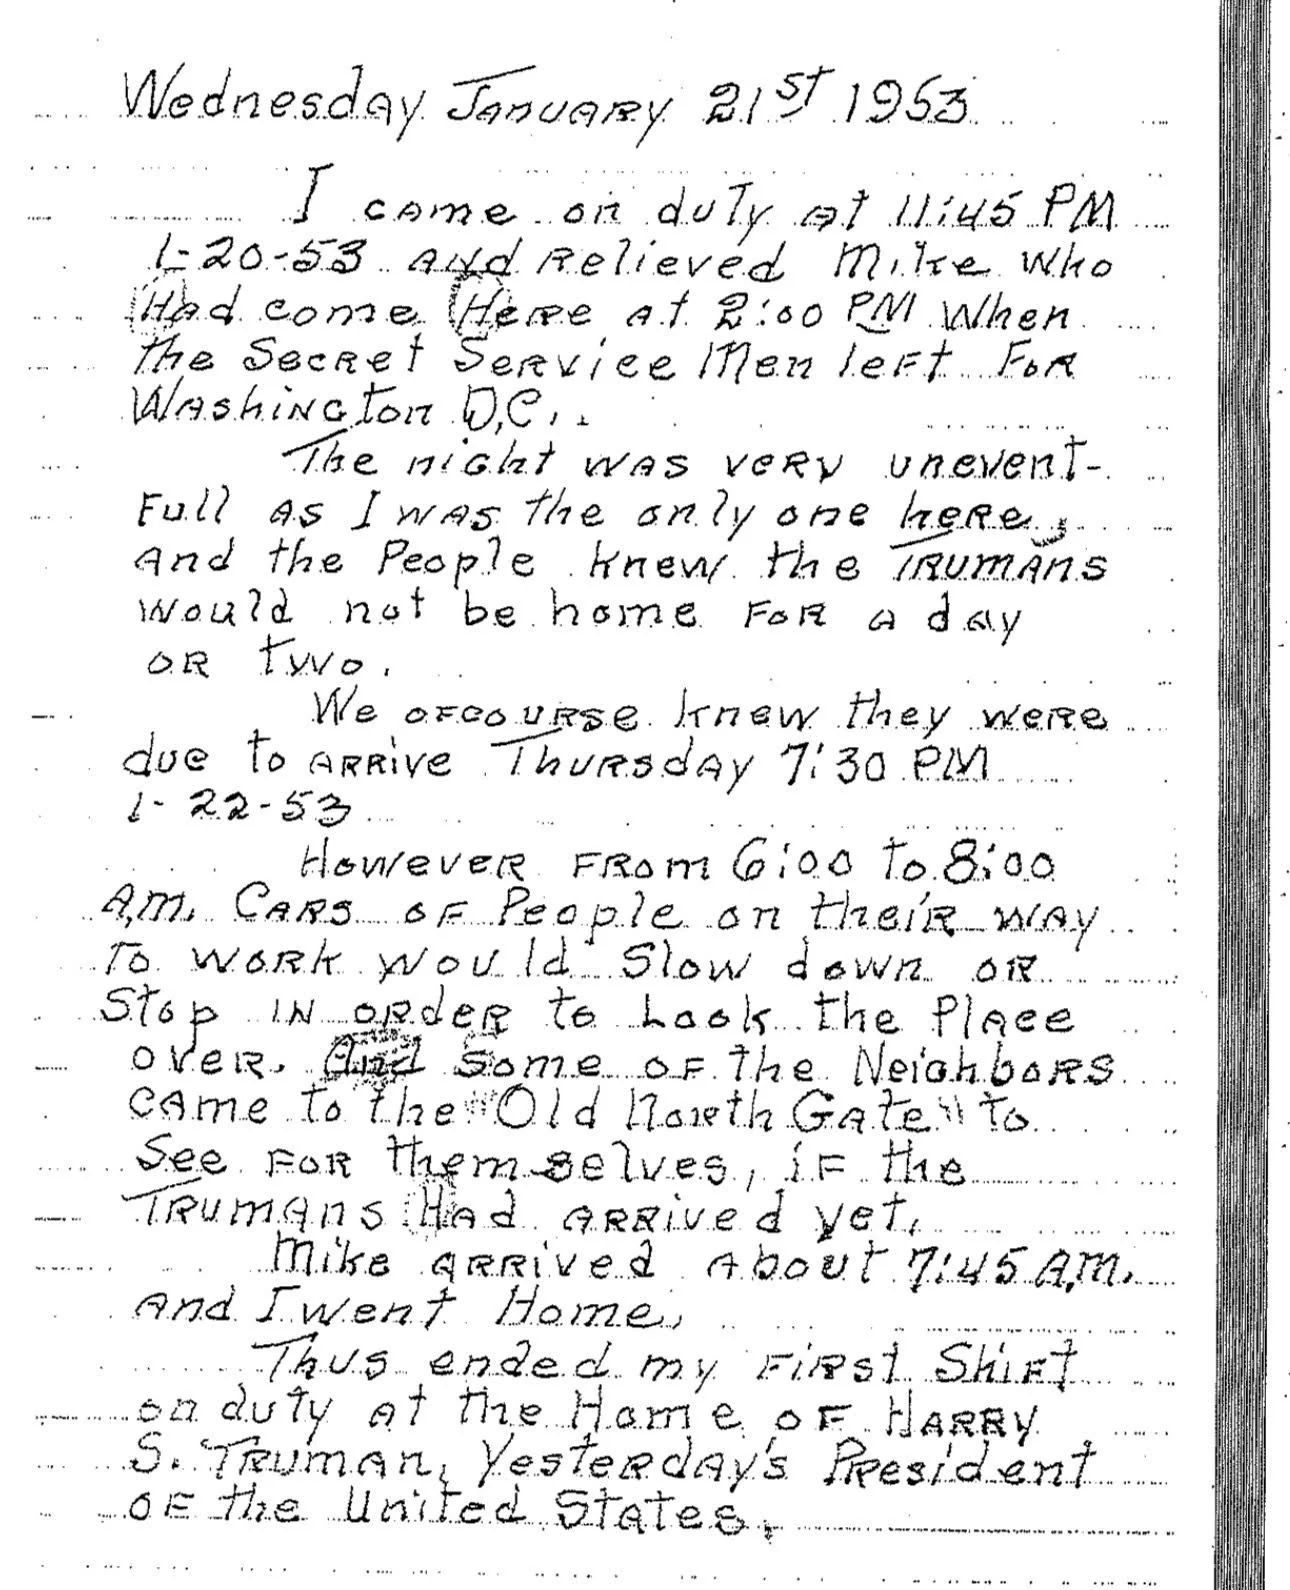 Wednesday January 21st 1953
I came on duty at 11:45 PM
1-20-53 and relieved Mike who
Had come Here at 2:00 PM When
the Secret Service Men left For
Washington D.C..
The night was very unevent-
Full as I was the only one here,
and the People knew the Trumans
would not be home For a day
or Two.
We ofcourse knew they were
due to arrive Thursday 7:30 PM
1-22-53
However From 6:00 to 8:00
A.M. Cars of People on their way
To work would Slow down or
Stop in order to Look the Place
over. And Some of the Neighbors
came to the "Old North Gate" to
See For themselves, if the
Trumans Had arrived yet.
Mike arrived about 7:45 A.M.
and I went Home.
Thus ended my First Shift
on duty at the Home of Harry
S. Truman, Yesterday's President
of the United States.